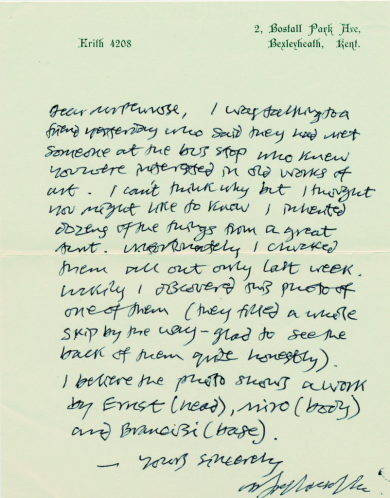 Erith 4208
2, Bostall Park Ave,
Bexleyheath, Kent.
Dear Mr Penrose, I was talking to a
friend yesterday who said they had met
someone at the bus stop who knew
you were interested in old works of
art. I can't think why but I thought
you might like to know I inherited
dozens of the things from a great
aunt. Unfortunately I chucked
them all out only last week.
Luckily I discovered this photo of
one of them (they filled a whole
skip by the way - glad to see the
back of them quite honestly).
I believe the photo shows a work
by Ernst (head), Miro (body)
and Brancusi (base).
— Yours sincerely